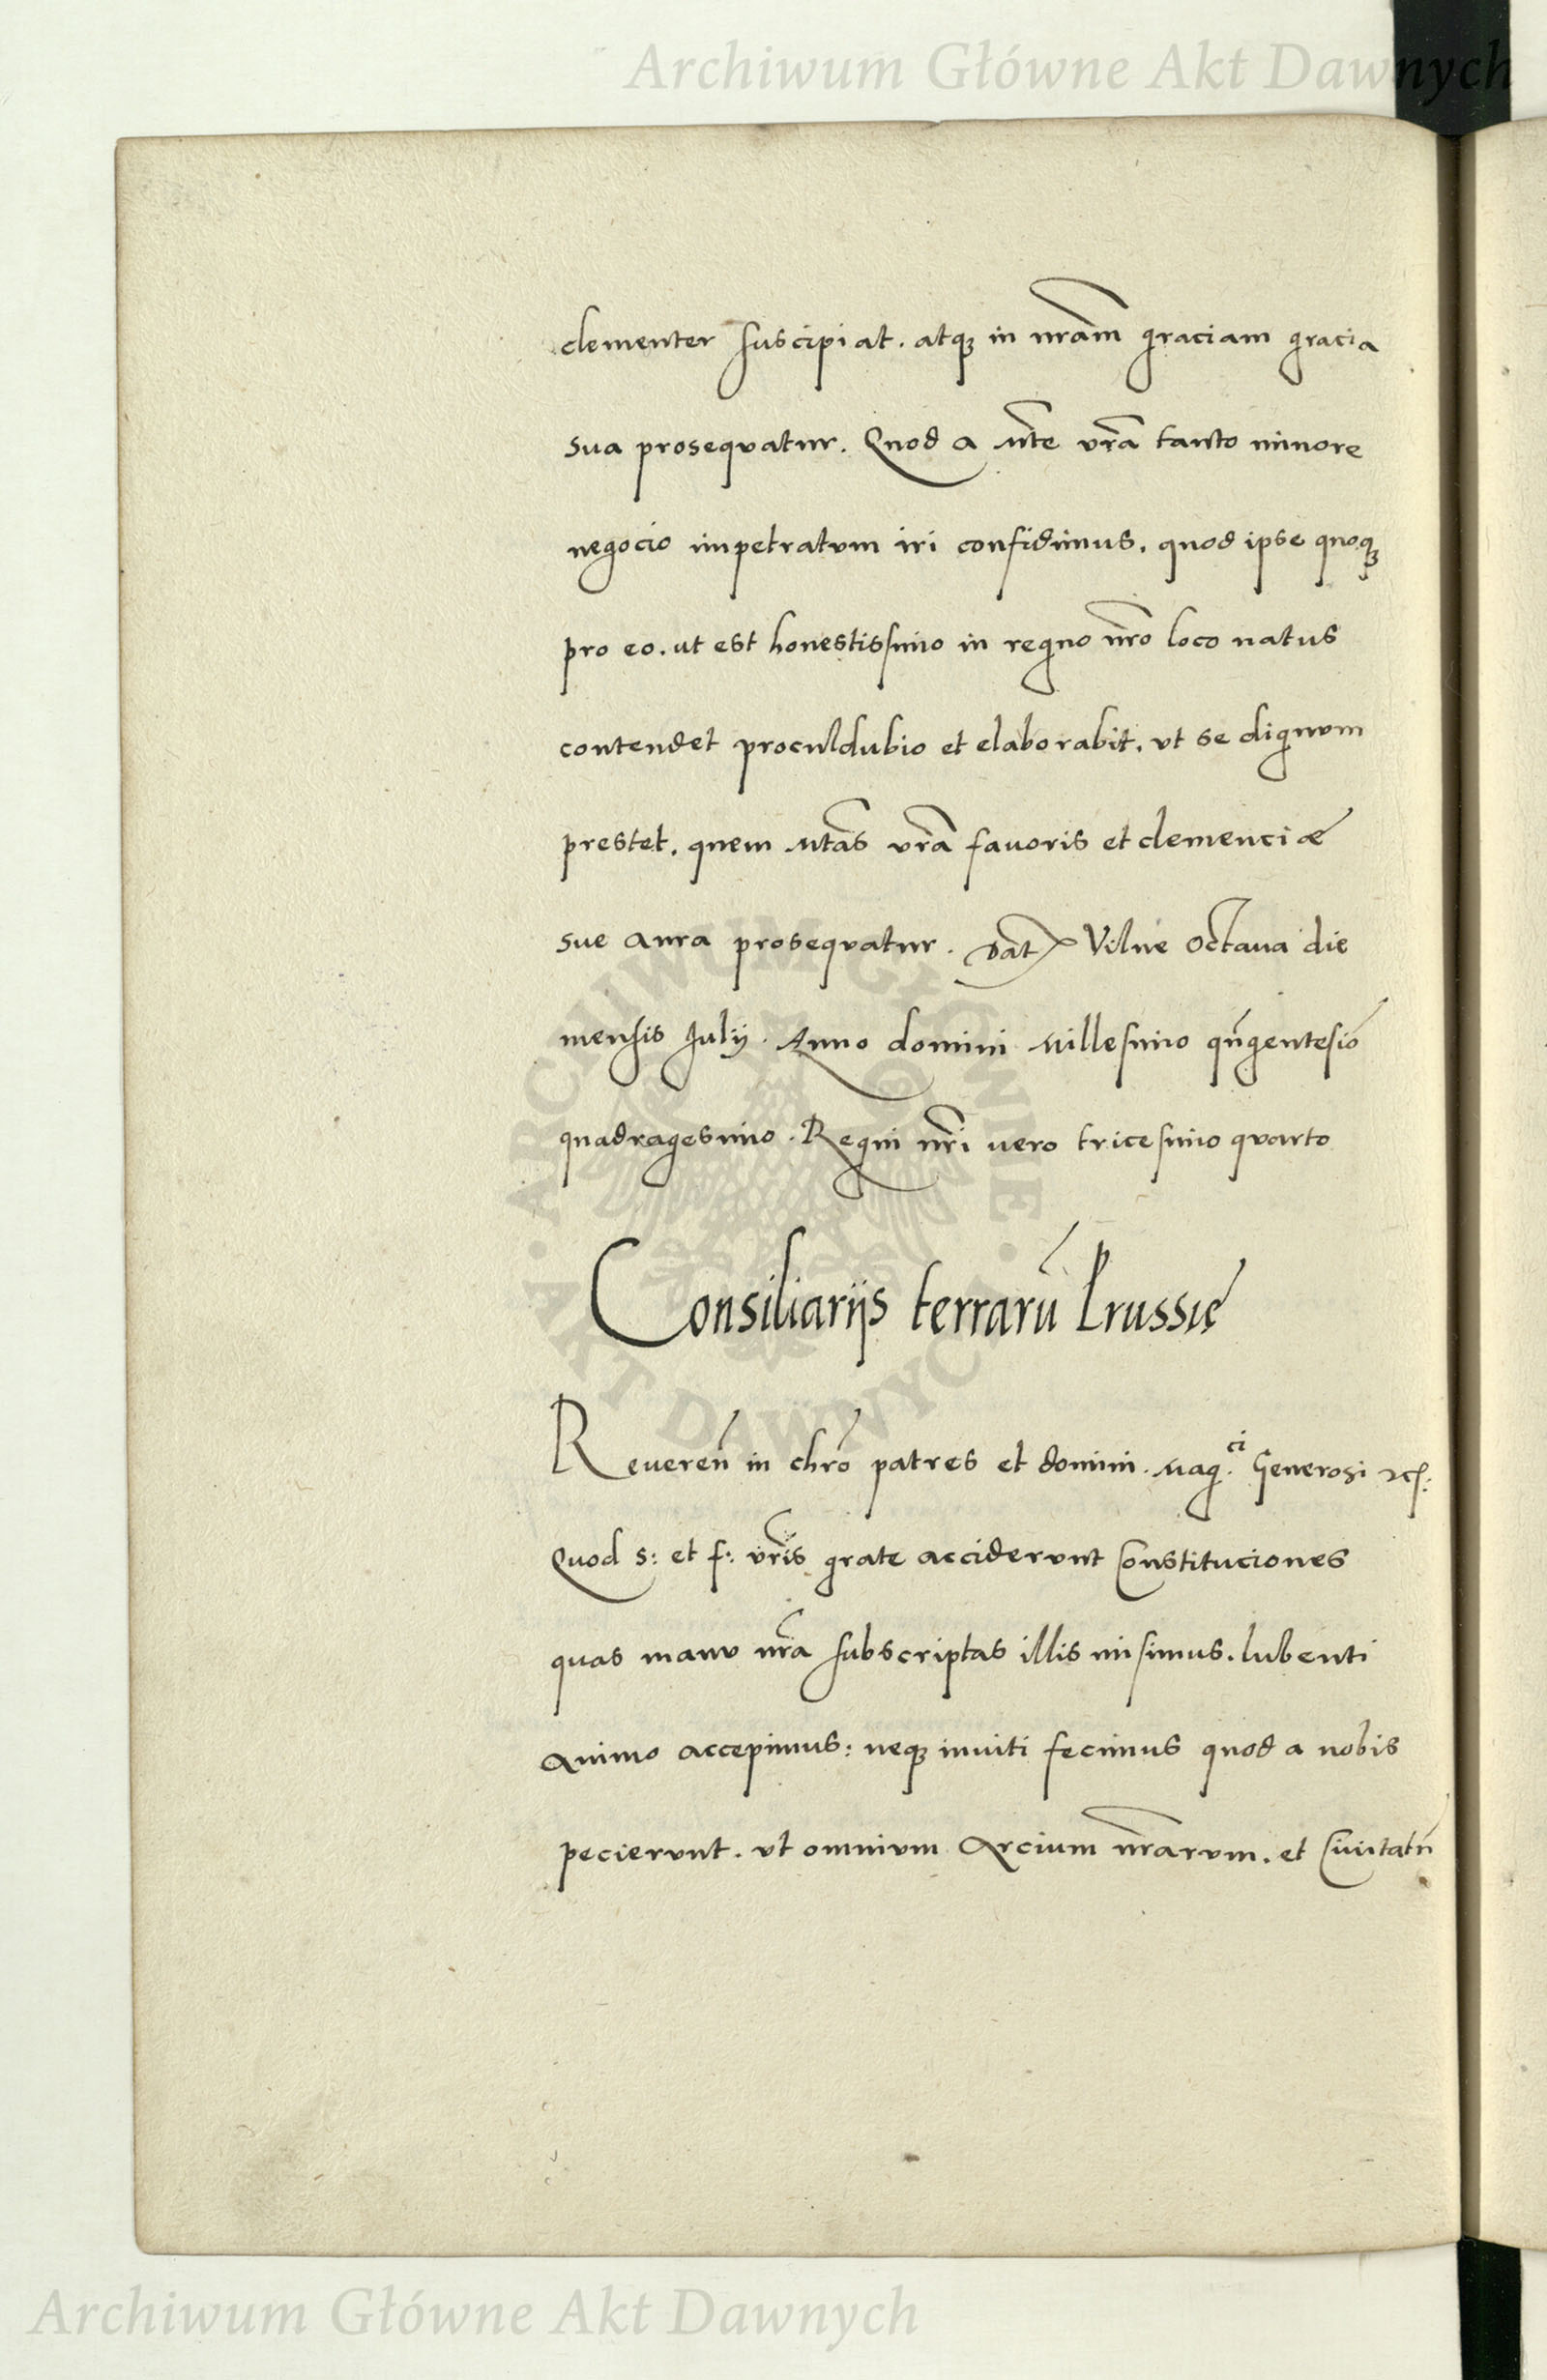 Archiwum Główne Akt Dawnych
clementer suscipiat. atq₃ in nr̃am graciam gracia
sua prosequatur. Quod a Mte vr̃a tanto minore
negocio impetratum iri confidimus, quod ipse quoq₃
pro eo. ut est honestissimo in regno nr̃o loco natus
contendet proculdubio et elaborabit. ut se dignum
prestet. quem Mtas vr̃a favoris et clemenciæ
sue aura prosequatur. Dat Vilne Octava die
mensis Julij. Anno domini Millesimo qñgentesiõ
quadragesimo. Regni nr̃i vero tricesimo quarto
Consiliarijs terrarũ Prussię
Reueren̄ in chrõ patres et domini. Mag.ci Generosi ⁊c:
Quod s: et f: vr̃is grate acciderunt Constituciones
quas manu nr̃a subscriptas illis misimus. lubenti
animo accepimus: neq₃ inviti fecimus quod a nobis
pecierunt. ut omnium Arcium nr̃arum. et Civitatñ
ARCHIWUM GŁÓWNE AKT DAWNYCH
Archiwum Główne Akt Dawnych